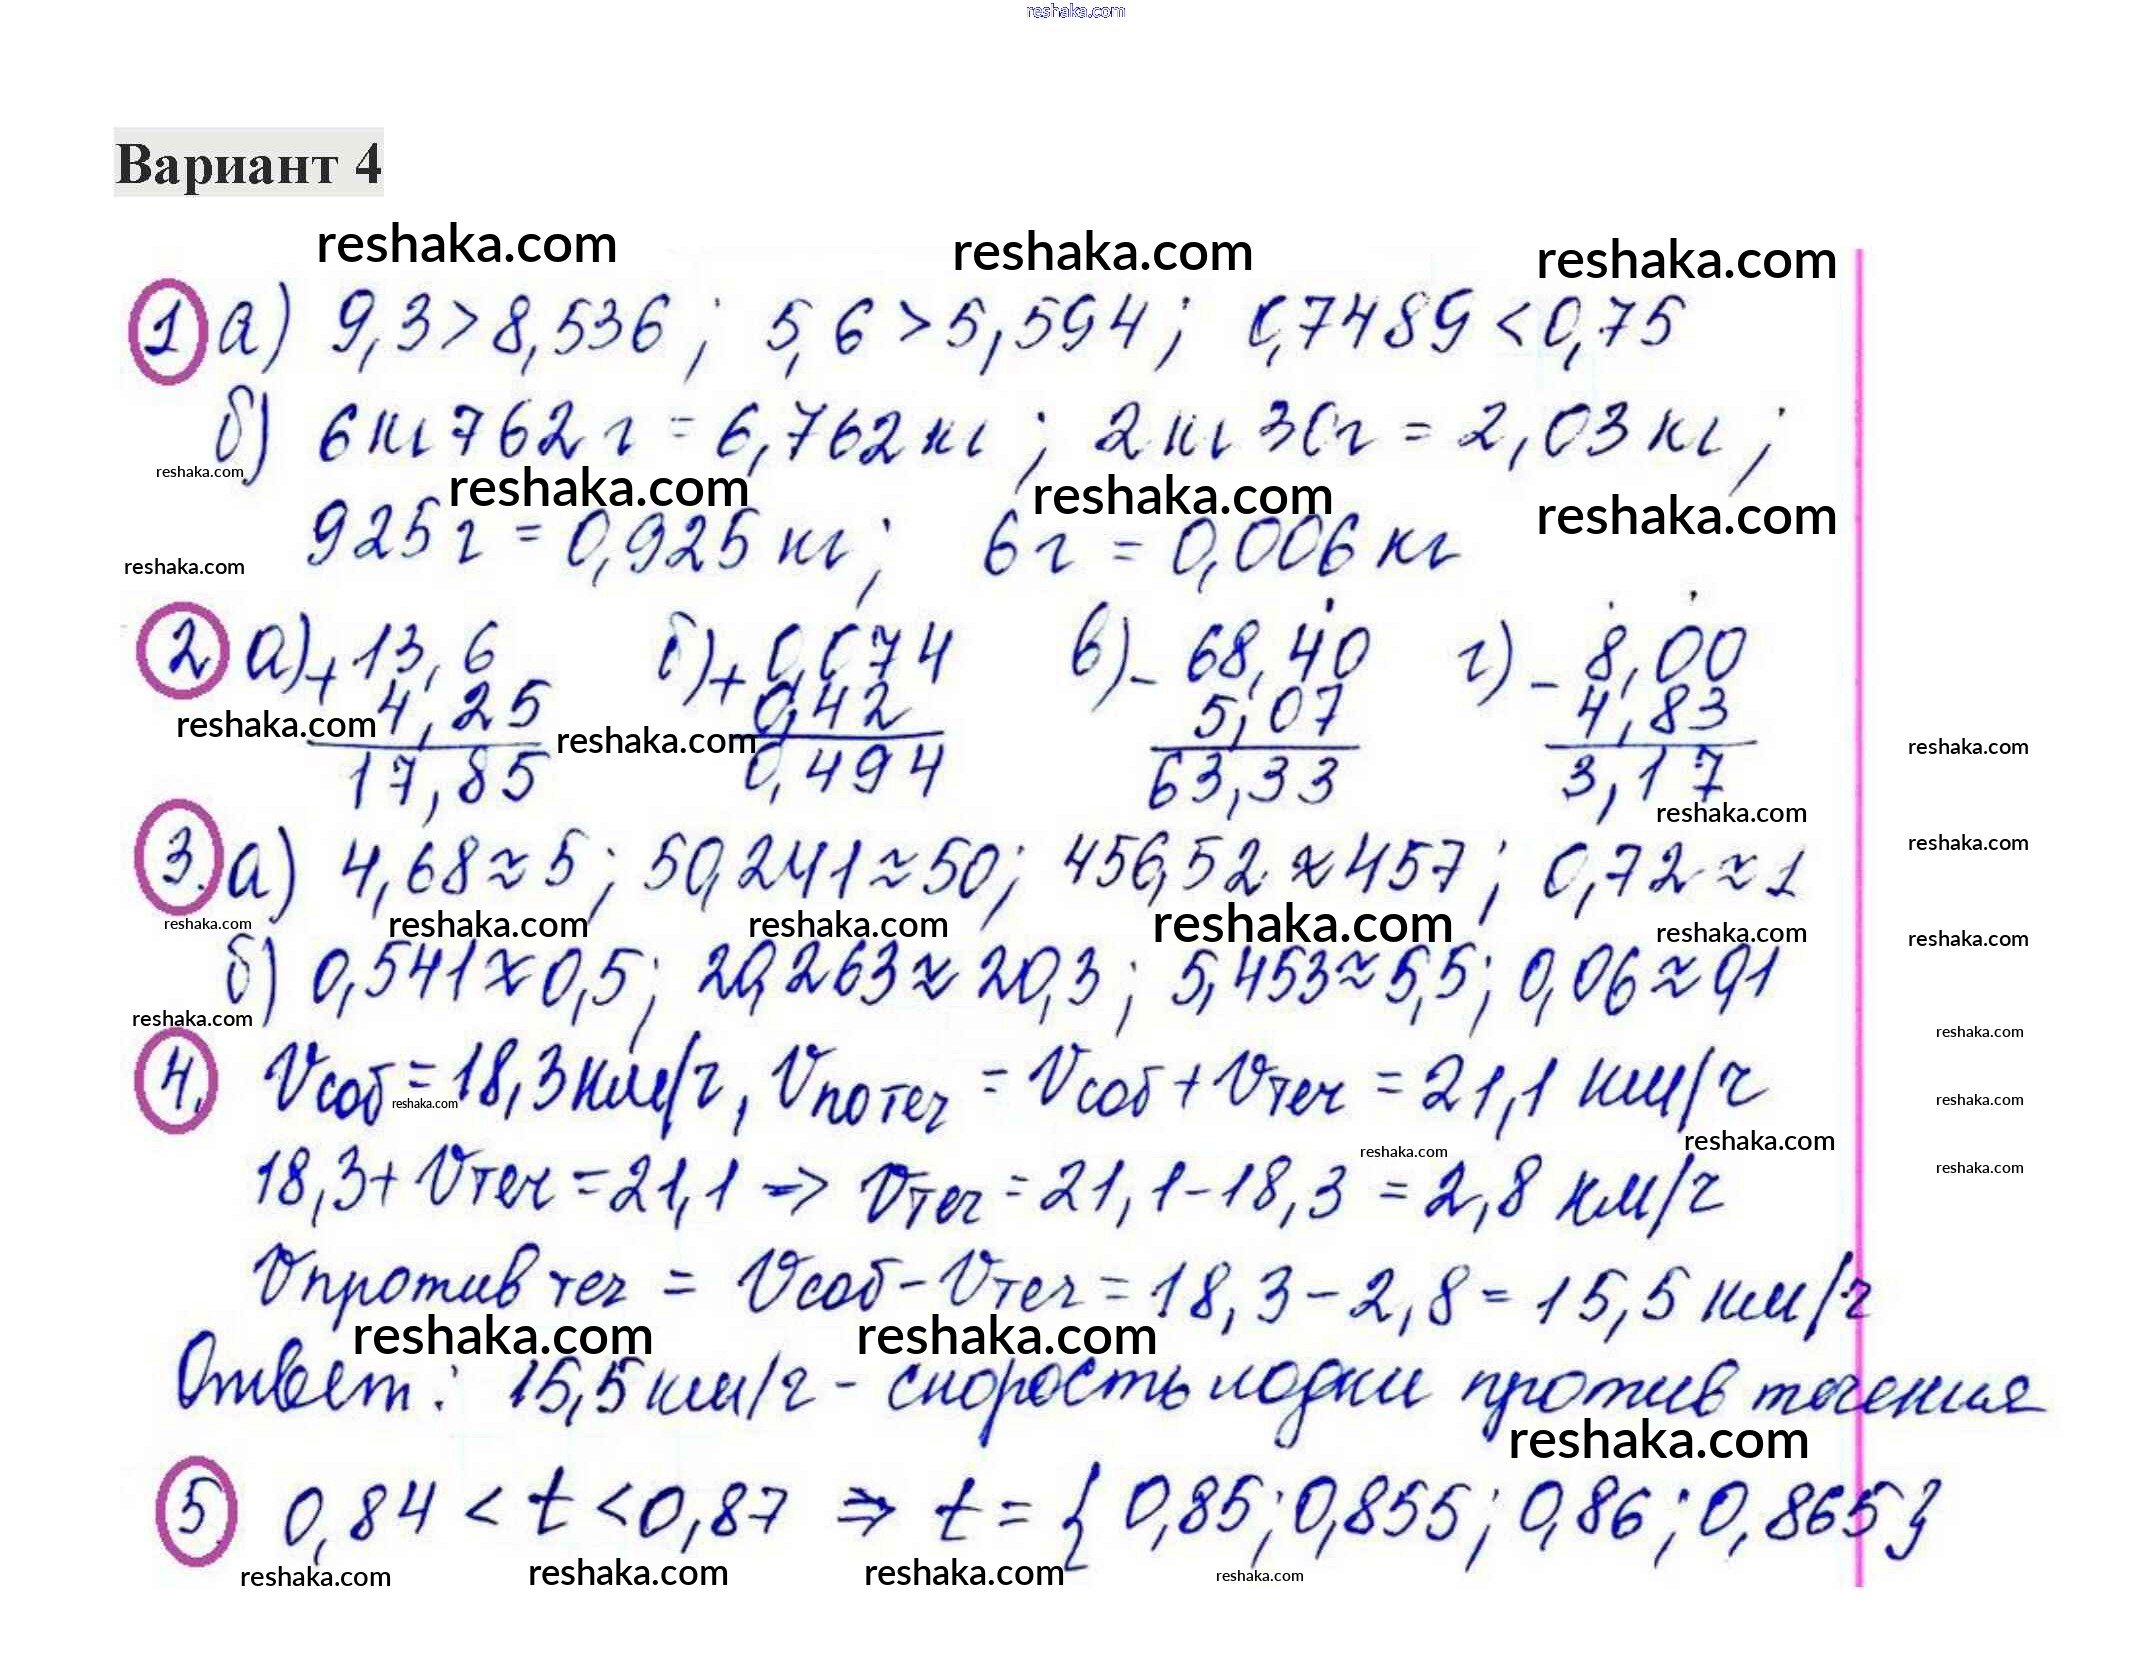 reshaka.com
Вариант 4
reshaka.com reshaka.com reshaka.com
1 а) 9,3 > 8,536 ; 5,6 > 5,594 ; 0,7489 < 0,75
б) 6кг 762 г = 6,762 кг ; 2 кг 30г = 2,03 кг ;
reshaka.com reshaka.com reshaka.com reshaka.com
925 г = 0,925 кг ; 6 г = 0,006 кг
reshaka.com
2 а) + 13,6 б) + 0,074 в) - 68,40 г) - 8,00
4,25 0,42 5,07 4,83
reshaka.com reshaka.com reshaka.com
17,85 0,494 63,33 3,17
reshaka.com reshaka.com
3. а) 4,68 ≈ 5 ; 50,241 ≈ 50 ; 456,52 ≈ 457 ; 0,72 ≈ 1
reshaka.com reshaka.com reshaka.com reshaka.com reshaka.com reshaka.com
б) 0,541 ≈ 0,5 ; 20,263 ≈ 20,3 ; 5,453 ≈ 5,5 ; 0,06 ≈ 0,1
reshaka.com reshaka.com
4. Vсоб = 18,3 км/ч, Vпо теч = Vсоб + Vтеч = 21,1 км/ч
reshaka.com reshaka.com
reshaka.com reshaka.com reshaka.com
18,3 + Vтеч = 21,1 => Vтеч = 21,1 - 18,3 = 2,8 км/ч
Vпротив теч = Vсоб - Vтеч = 18,3 - 2,8 = 15,5 км/ч
reshaka.com reshaka.com
Ответ: 15,5 км/ч - скорость лодки против течения
reshaka.com
5 0,84 < t < 0,87 => t = { 0,85 ; 0,855 ; 0,86 ; 0,865 }
reshaka.com reshaka.com reshaka.com reshaka.com